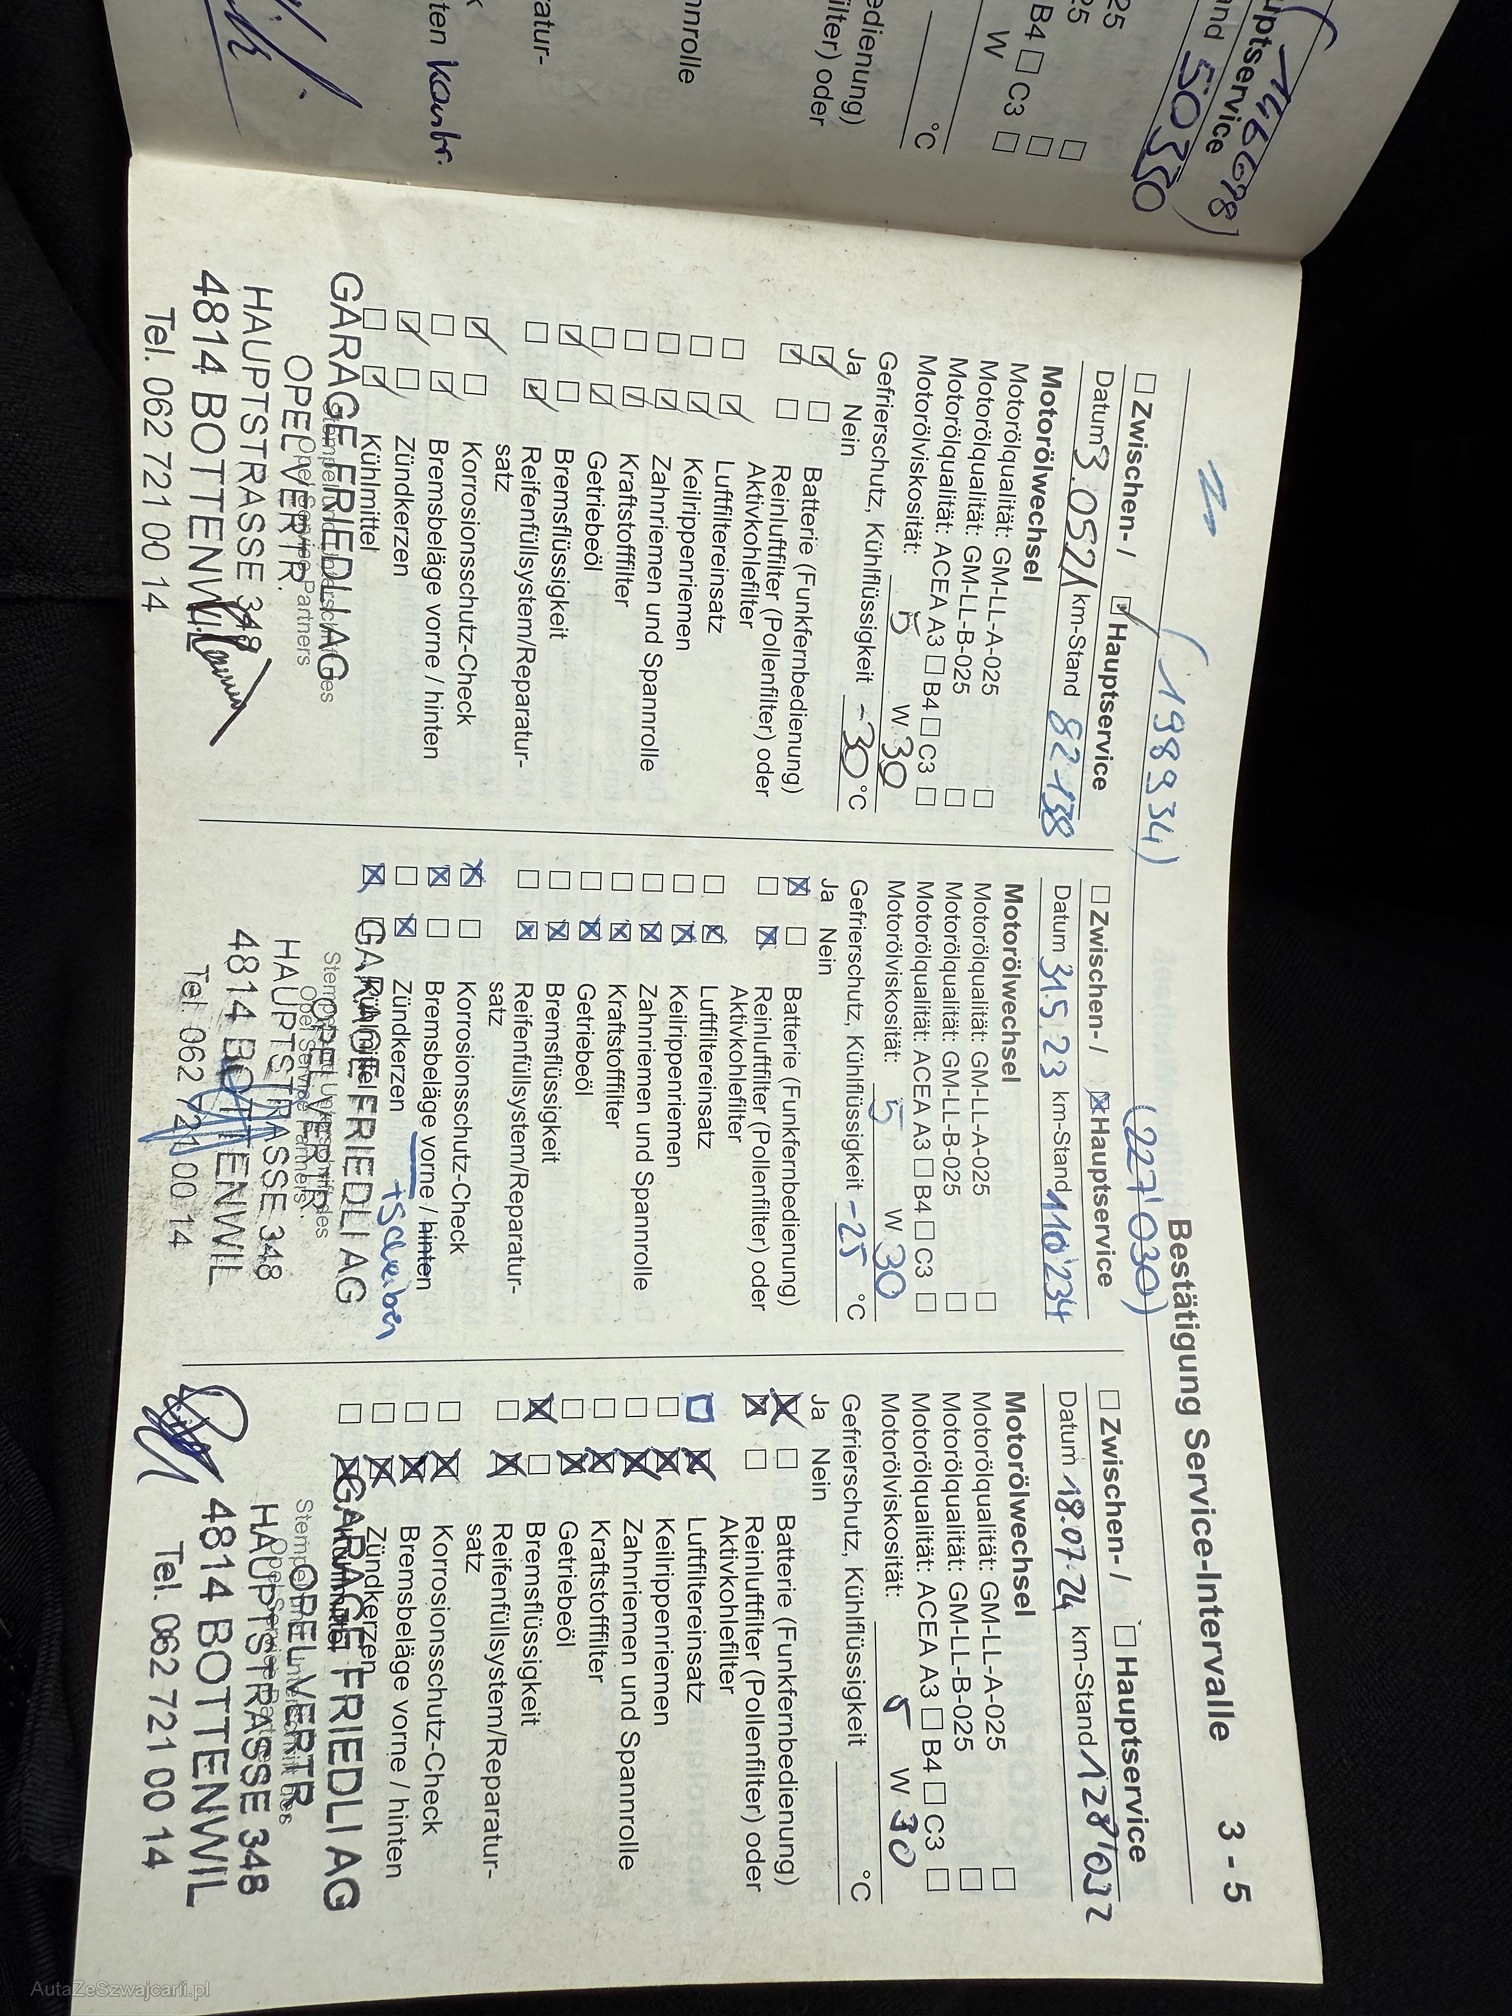 uptservice
and 50350
25
25
B4 □ C3 □
W
°C
edienung)
ilter) oder
nrolle
atur-
ten Kontr.
Bestätigung Service-Intervalle 3 - 5
(198934)
□ Zwischen- / ☑ Hauptservice
Datum 3.05 21 km-Stand 82 138
Motorölwechsel
Motorölqualität: GM-LL-A-025 □
Motorölqualität: GM-LL-B-025 □
Motorölqualität: ACEA A3 □ B4 □ C3 □
Motorölviskosität: 5 W 30
Gefrierschutz, Kühlflüssigkeit -30 °C
Ja Nein
☑ □ Batterie (Funkfernbedienung)
☑ □ Reinluftfilter (Pollenfilter) oder
Aktivkohlefilter
□ ☑ Luftfiltereinsatz
□ ☑ Keilrippenriemen
□ ☑ Zahnriemen und Spannrolle
□ ☑ Kraftstofffilter
□ ☑ Getriebeöl
☑ □ Bremsflüssigkeit
□ ☑ Reifenfüllsystem/Reparatur-
satz
☑ □ Korrosionsschutz-Check
□ ☑ Bremsbeläge vorne / hinten
☑ □ Zündkerzen
□ ☑ Kühlmittel
GARAGE FRIEDLI AG
OPEL VERTR.
Opel Service Partners
HAUPTSTRASSE 348
4814 BOTTENWIL
Tel. 062 721 00 14
(227'030)
□ Zwischen- / ☒ Hauptservice
Datum 31.5.23 km-Stand 110'234
Motorölwechsel
Motorölqualität: GM-LL-A-025 □
Motorölqualität: GM-LL-B-025 □
Motorölqualität: ACEA A3 □ B4 □ C3 □
Motorölviskosität: 5 W 30
Gefrierschutz, Kühlflüssigkeit -25 °C
Ja Nein
☒ □ Batterie (Funkfernbedienung)
□ ☒ Reinluftfilter (Pollenfilter) oder
Aktivkohlefilter
□ ☒ Luftfiltereinsatz
□ ☒ Keilrippenriemen
□ ☒ Zahnriemen und Spannrolle
□ ☒ Kraftstofffilter
□ ☒ Getriebeöl
□ ☒ Bremsflüssigkeit
□ ☒ Reifenfüllsystem/Reparatur-
satz
☒ □ Korrosionsschutz-Check
☒ □ Bremsbeläge vorne / hinten
+ Scheiben
□ ☒ Zündkerzen
☒ □ Kühlmittel
GARAGE FRIEDLI AG
Stempel und Unterschrift des
OPEL VERTR.
Opel Service Partners
HAUPTSTRASSE 348
4814 BOTTENWIL
Tel. 062 721 00 14
□ Zwischen- / □ Hauptservice
Datum 18.07.24 km-Stand 128'032
Motorölwechsel
Motorölqualität: GM-LL-A-025 □
Motorölqualität: GM-LL-B-025 □
Motorölqualität: ACEA A3 □ B4 □ C3 □
Motorölviskosität: 5 W 30
Gefrierschutz, Kühlflüssigkeit °C
Ja Nein
☒ □ Batterie (Funkfernbedienung)
☒ □ Reinluftfilter (Pollenfilter) oder
Aktivkohlefilter
□ ☒ Luftfiltereinsatz
□ ☒ Keilrippenriemen
□ ☒ Zahnriemen und Spannrolle
□ ☒ Kraftstofffilter
□ ☒ Getriebeöl
☒ □ Bremsflüssigkeit
□ ☒ Reifenfüllsystem/Reparatur-
satz
□ ☒ Korrosionsschutz-Check
□ ☒ Bremsbeläge vorne / hinten
□ ☒ Zündkerzen
□ ☒ Kühlmittel
GARAGE FRIEDLI AG
Stempel und Unterschrift des
OPEL VERTR
Opel Service Partners
HAUPTSTRASSE 348
4814 BOTTENWIL
Tel. 062 721 00 14
AutaZeSzwajcarii.pl